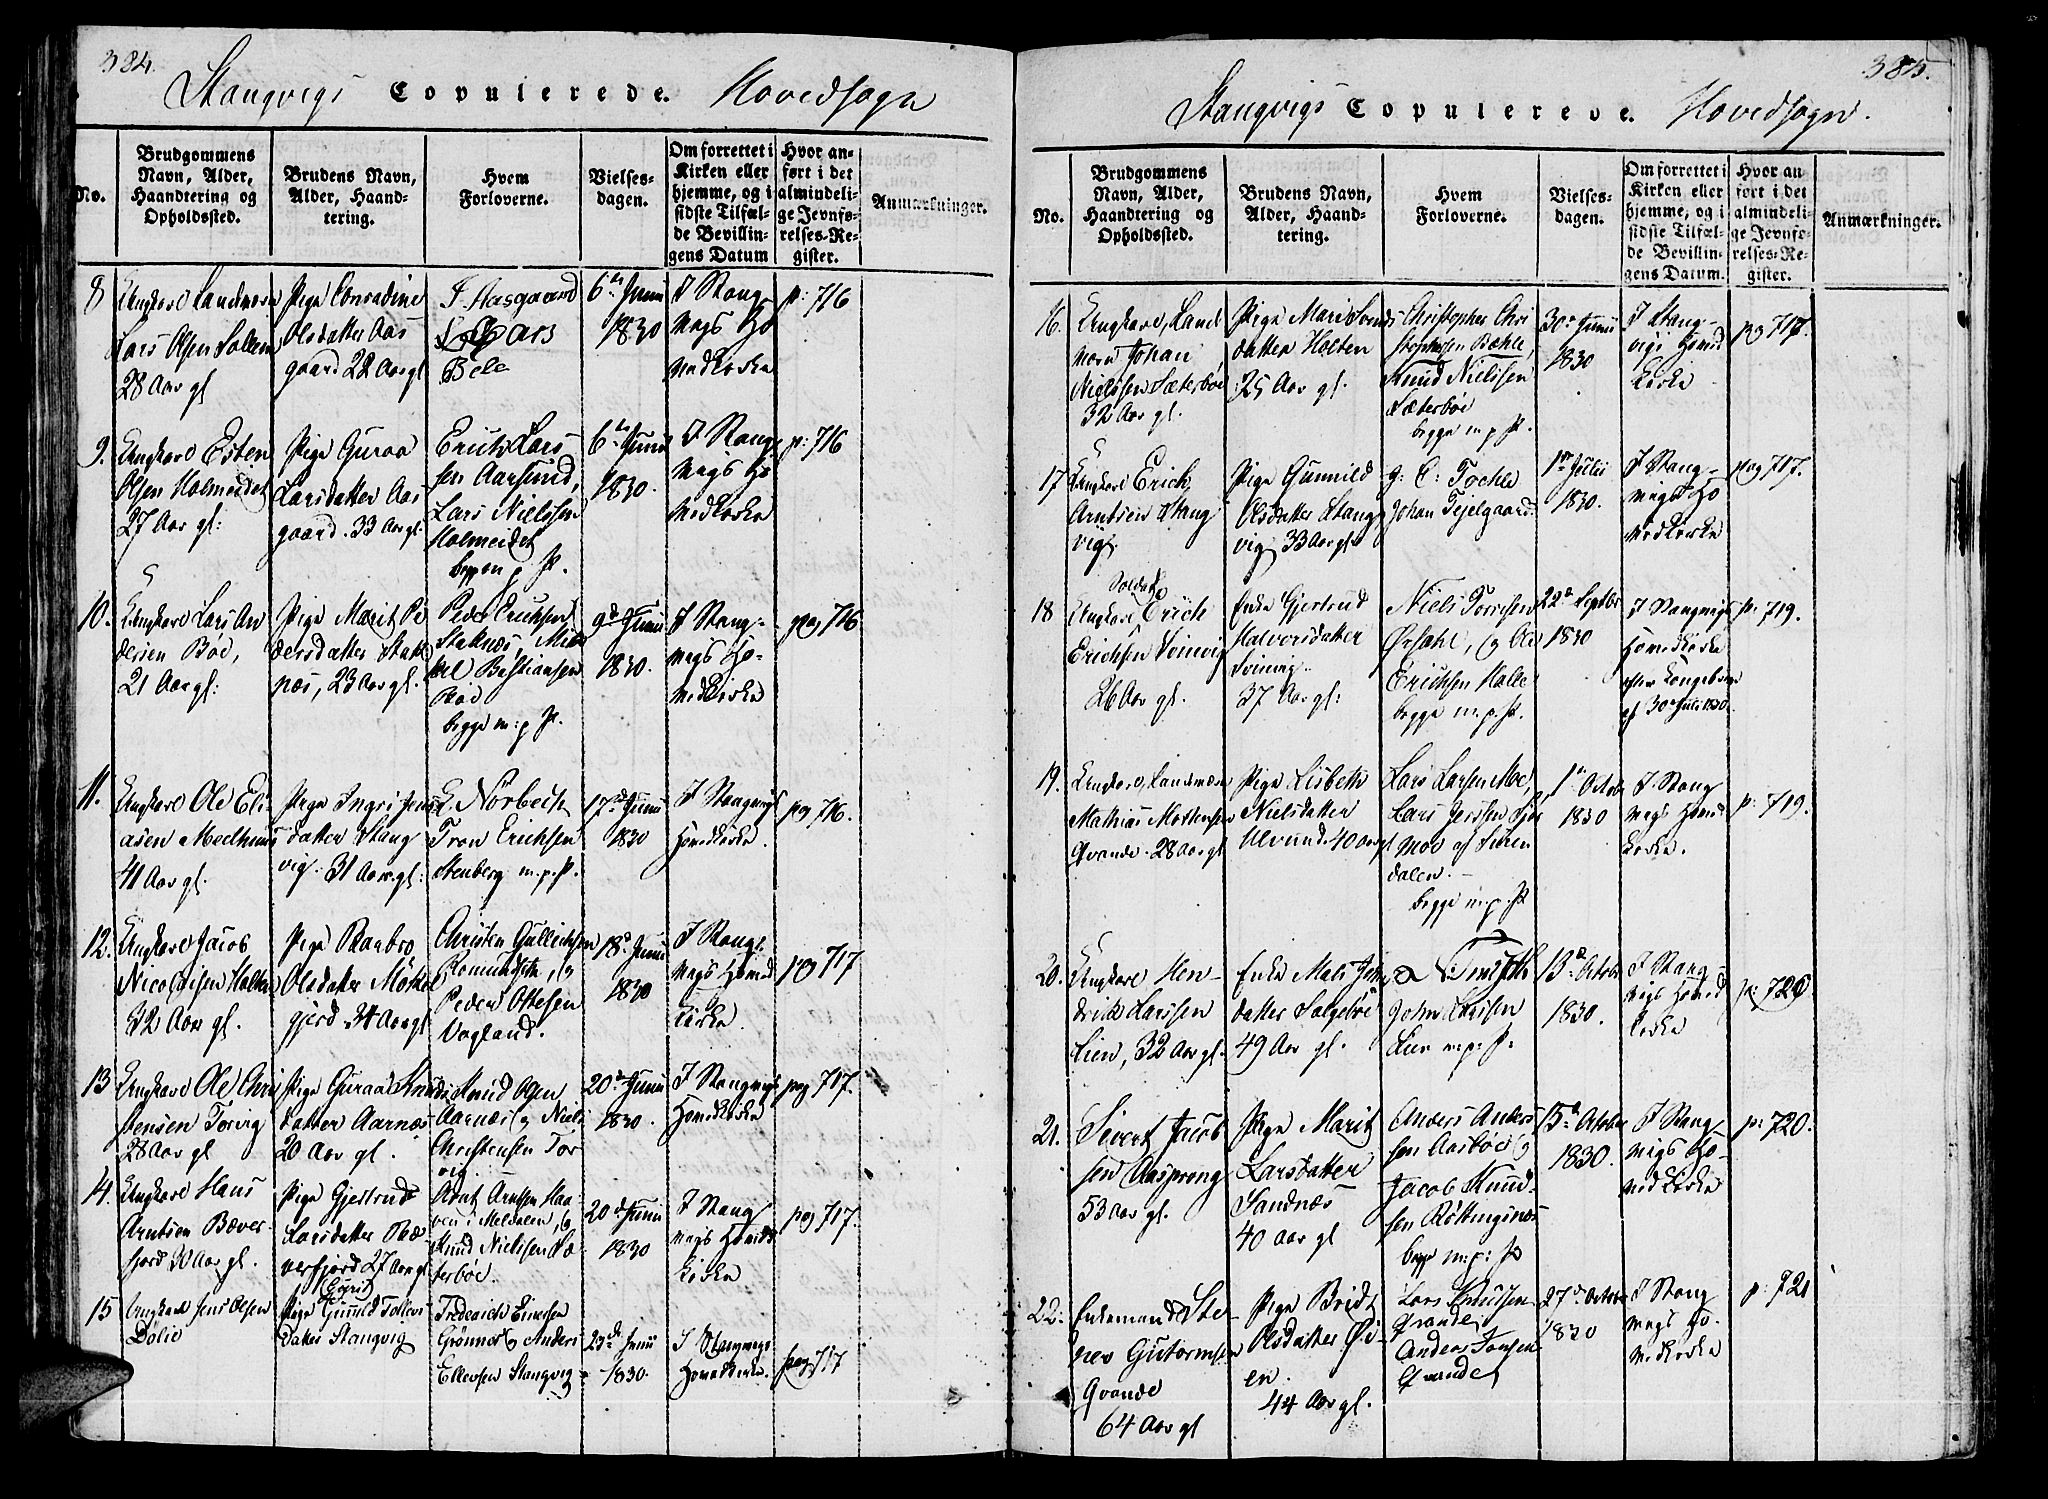 384.
Stangvigs Copulerede. Hovedsogn
No.
Brudgommens Navn, Alder, Haandtering og Opholdssted.
Brudens Navn, Alder, Haandtering.
Hvem Forloverne.
Vielsesdagen.
Om forrettet i Kirken eller hjemme, og i sidste Tilfælde Bevillingens Datum
Hvor anført i det almindelige Jevnførelses-Register.
Anmærkninger.
8
Ungkarl Landværn
Lars Olsen
28 Aar gl
Pige Conradine
Olsdatter Aas
gaard 22 Aar gl
Aasgaard
Lars
Bele
6te Junii
1830
I Stang
vigs Ho
vedkirke
p: 716
9.
Ungkarl Esten
Olsen Holmeidet
27 Aar gl:
Pige Guraa
Larsdatter Aas
gaard. 33 Aar gl
Erich Lars
sen Aarsund,
Lars Nielssen
Holmeidet
begge m. p. P.
6te Junii
1830.
I Stang
vigs Ho
vedkirke
p: 716
10.
Ungkarl Lars An
dersen Böe,
21 Aar gl:
Pige Marit Pe
dersdatter Stak
næs, 23 Aar gl.
Peder Erichsen
Staknæs, Mik
kel Bastiansen
begge m: p P.
9de Junii
1830.
I Stang-
vigs Ho-
vedkirke
pag 716
11.
Ungkarl Ole Eli-
asen Melhuus
41 Aar gl.
Pige Ingri Jens
datter Stang
vig. 31 Aar gl:
E. Norbech
Tron Erichsen
Stenberg m. p. P.
17de Junii
1830
I Stangvigs
Hovedkirke.
pag 716.
12.
Ungkarl Jacob
Nicolaisen Holten
32 Aar gl.
Pige Barbro
Olsdatter Mökkel
gjerd 34 Aar gl
Christen Gullichsen
Romundset, og
Peder Ottesen
Vogland.
18de Junii
1830
I Stang
vigs Hoved
kirke.
pag 717
13
Ungkarl Ole Chri
stensen Torvig
28 Aar gl
Pige Guraa Knuds
datter Aarnæs
20 Aar gl.
Knud Olsen
Aarnæs og Niels
Christensen Tor
vig.
20de Junii
1830.
I Stangvigs
Hovedkirke
pag 717.
14.
Ungkarl Hans
Arntsen Bæver-
fjord 30 Aar gl.
Pige Gjertrud
Larsdatter Bæ
verfjord 27 Aar gl
Arnt Arntsen Haa-
ven i Meldalen, og
Knud Nielssen Sæ
terböe.
20de Junii
1830
I Stang
vigs Hoved
kirke
pag 717.
15
Ungkarl Jens Olsen
Dølie
(Eyrit)
Pige Gunild Tollevs
datter Stangvig
Frederich Einersen
Grønnes og Anders
Ellevsen Stangvig
23de Junii
1830.
I Stangvigs
Hovedkirke.
pag 717
385.
Stangvigs Copulerede. Hovedsogn.
No.
Brudgommens Navn, Alder, Haandtering og Opholdssted.
Brudens Navn, Alder, Haandtering.
Hvem Forloverne.
Vielsesdagen.
Om forrettet i Kirken eller hjemme, og i sidste Tilfælde Bevillingens Datum.
Hvor anført i det almindelige Jevnførelses-Register.
Anmærkninger.
16.
Ungkarl, Land
værn Johan
Nielssen Sæterböe
32 Aar gl.
Pige Mari Svends
datter Holten
25 Aar gl.
Christopher Chri
stophersen Bæhle,
Knud Nielssen
Sæterböe
begge m. p. P.
30te Junii
1830
I Stang-
vigs Hoved
kirke
pag 717.
17
Ungkarl Erich
Arntsen Stang
vig.
Pige Gunnild
Olsdatter Stang
vig 33 Aar gl
Johan Fejelgaard.
1ste Julii
1830.
I Stang-
vigs Ho
vedkirke
pag 717.
18
Soldat
Ungkarl Erich
Erichsen Svinvig
26 Aar gl.
Enke Gjertrud
Halvorsdatter
Svinvig.
37 Aar gl:
Niels Torresen
Örsahl, og Ole
Erichsen Halle
begge m. p. P.
22de Septbr
1830
I Stangvigs
Hovedkirke
efter Kongebrev
af 30te Juli 1830.
p: 719.
19.
Ungkarl, Landværn
Mathias Mortensen
Qvande. 28 Aar gl
Pige Lisbeth
Nielsdatter
Ulvund. 40 aar gl
Lars Larsen Moe,
Lars Jerssen
moe af Suren
dalen.-
begge m. p. P
1te Octobr
1830
I Stang
vigs Hoved
kirke.
p: 719.
20.
Ungkarl Hen-
drik Larssen
Lien, 32 Aar gl.
Enke Mali Jens
datter Solgeböe
49 Aar gl.
John Larssen
Lien m: p: P:
13de Octobr
1830.
I Stang-
vigs Hoved
kirke
p: 720.
21.
Sivert Jacob
sen Aasprong
53 aar gl.
Pige Marit
Larsdatter
Sandnæs
40 aar gl
Anders Anders
sen Aasböe og
Jacob Knud-
sen Röttingsnæs
begge m: p: P
15de Octobr
1830.
I Stang-
vigs Ho-
vedkirke
p: 720.
22.
Enkemand Ste
ner Gutormsen
Qvande
64 Aar gl
Pige Bridt
Olsdatter Öi-
en.
44 Aar gl.
Lars Knutsen
Qvande,
Anders Jonsen
Qvande
27de Octobr
1830
I Stang
vigs Ho-
vedkirke
p: 721